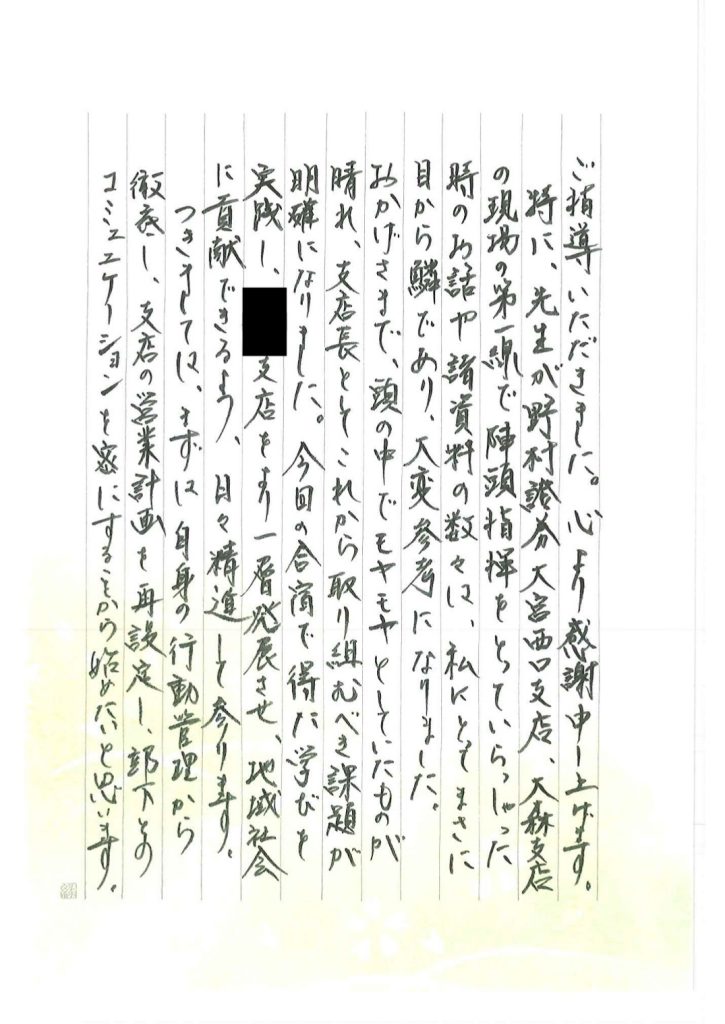 ご指導いただきました。心より感謝申し上げます。
特に、先生が野村證券大宮西口支店、大森支店
の現場の第一線で陣頭指揮をとっていらっしゃった
時のお話や諸資料の数々は、私にとってまさに
目から鱗であり、大変参考になりました。
おかげさまで、頭の中でモヤモヤとしていたものが
晴れ、支店長としてこれから取り組むべき課題が
明確になりました。今回の合宿で得た学びを
実践し、支店をより一層発展させ、地域社会
に貢献できるよう、日々精進して参ります。
つきましては、まずは自身の行動管理から
徹底し、支店の営業計画を再設定し、部下との
コミュニケーションを密にすることから始めたいと思います。